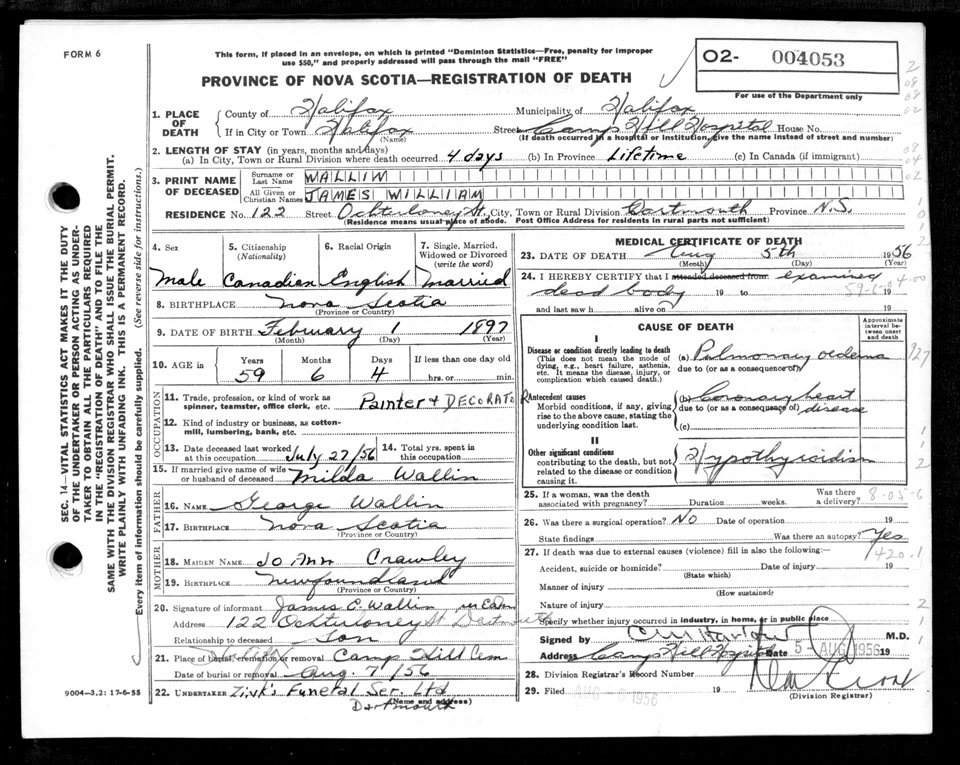 FORM 6
This form, if placed in an envelope, on which is printed "Dominion Statistics—Free, penalty for improper
use $50," and properly addressed will pass through the mail "FREE"
PROVINCE OF NOVA SCOTIA—REGISTRATION OF DEATH
O2- 004053
For use of the Department only
1. PLACE OF DEATH
County of Halifax
Municipality of Halifax
If in City or Town Halifax
(Name)
Street Camp Hill Hospital House No.
(If death occurred in a hospital or institution, give the name instead of street and number)
2. LENGTH OF STAY (in years, months and days)
(a) In City, Town or Rural Division where death occurred 4 days (b) In Province Lifetime (c) In Canada (if immigrant)
3. PRINT NAME OF DECEASED
Surname or Last Name WALLIN
All Given or Christian Names JAMES WILLIAM
RESIDENCE No. 122 Street Ochterloney St, City, Town or Rural Division Dartmouth Province N.S.
(Residence means usual place of abode. Post Office Address for residents in rural parts not sufficient)
4. Sex
Male
5. Citizenship
(Nationality)
Canadian
6. Racial Origin
English
7. Single, Married, Widowed or Divorced
(write the word)
Married
8. BIRTHPLACE Nova Scotia
(Province or Country)
9. DATE OF BIRTH February 1 1897
(Month) (Day) (Year)
10. AGE in
Years Months Days If less than one day old
59 6 4 hrs. or min.
OCCUPATION
11. Trade, profession, or kind of work as
spinner, teamster, office clerk, etc. Painter + DECORATOR
12. Kind of industry or business, as cotton-
mill, lumbering, bank, etc.
13. Date deceased last worked
at this occupation July 27/56
14. Total yrs. spent in
this occupation
15. If married give name of wife
or husband of deceased Milda Wallin
FATHER
16. NAME George Wallin
17. BIRTHPLACE Nova Scotia
(Province or Country)
MOTHER
18. MAIDEN NAME Jo Ann Crawley
19. BIRTHPLACE Newfoundland
(Province or Country)
20. Signature of informant James C. Wallin
122 Ochterloney St Dartmouth
Relationship to deceased Son
21. Place of burial, cremation or removal Camp Hill Cem
Date of burial or removal Aug. 7/56
22. UNDERTAKER Zink's Funeral Ser. Ltd
(Name and address)
Dartmouth
9004-3.2: 17-6-55
SEC. 14—VITAL STATISTICS ACT MAKES IT THE DUTY
OF THE UNDERTAKER OR PERSON ACTING AS UNDER-
TAKER TO OBTAIN ALL THE PARTICULARS REQUIRED
IN THE "REGISTRATION OF DEATH" AND TO FILE THE
SAME WITH THE DIVISION REGISTRAR WHO SHALL ISSUE THE BURIAL PERMIT.
WRITE PLAINLY WITH UNFADING INK. THIS IS A PERMANENT RECORD.
Every item of information should be carefully supplied. (See reverse side for instructions.)
MEDICAL CERTIFICATE OF DEATH
23. DATE OF DEATH Aug 5th 1956
(Month) (Day) (Year)
24. I HEREBY CERTIFY that I attended deceased from examined
dead body 19 to 19
and last saw h alive on 19
CAUSE OF DEATH
Approximate interval between onset and death
I
Disease or condition directly leading to death
(This does not mean the mode of
dying, e.g., heart failure, asthenia,
etc. It means the disease, injury, or
complication which caused death.)
(a) Pulmonary oedema
due to (or as a consequence of)
Antecedent causes
Morbid conditions, if any, giving
rise to the above cause, stating the
underlying condition last.
(b) Coronary heart
due to (or as a consequence of) disease
(c)
II
Other significant conditions
contributing to the death, but not
related to the disease or condition
causing it.
Hypothyroidism
25. If a woman, was the death
associated with pregnancy? Duration weeks. Was there a delivery?
26. Was there a surgical operation? No Date of operation 19
State findings Was there an autopsy? Yes
420.1
27. If death was due to external causes (violence) fill in also the following:—
Accident, suicide or homicide? Date of injury 19
(State which)
Manner of injury
(How sustained)
Nature of injury
Specify whether injury occurred in industry, in home, or in public place
Signed by M.D.
Address Camp Hill Hospital Date 5 AUG 1956 19
28. Division Registrar's Record Number
29. Filed AUG 1956 19
(Division Registrar)